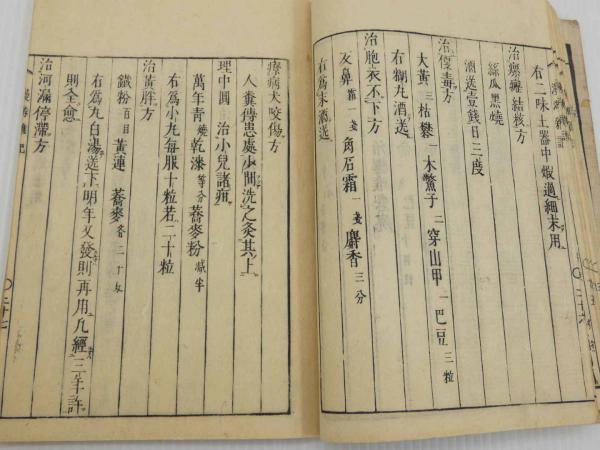 右二味土器中煆過細末用
治瘰癧結核方
絲瓜黒燒
酒送壹錢日三度
治便毒方
大黃三 枯礬一 木鱉子二 穿山甲一 巴豆三粒
右糊丸酒送
治胞衣不下方
反鼻 霜一戔 角石霜一戔 麝香三分
右爲末酒送
〇二十六
療病犬咬傷方
人糞傳患處少間洗之灸其上
理中圓 治小兒諸疳
萬年青燒 乾漆等分 蕎麥粉減半
右爲小丸每服十粒若二十粒
治黃胖方
鐵粉百目 黃連 蕎麥各二十匁
右爲丸白湯送下明年又發則再用凡經三年許
則全愈
治河漏停滯方
〇二十七